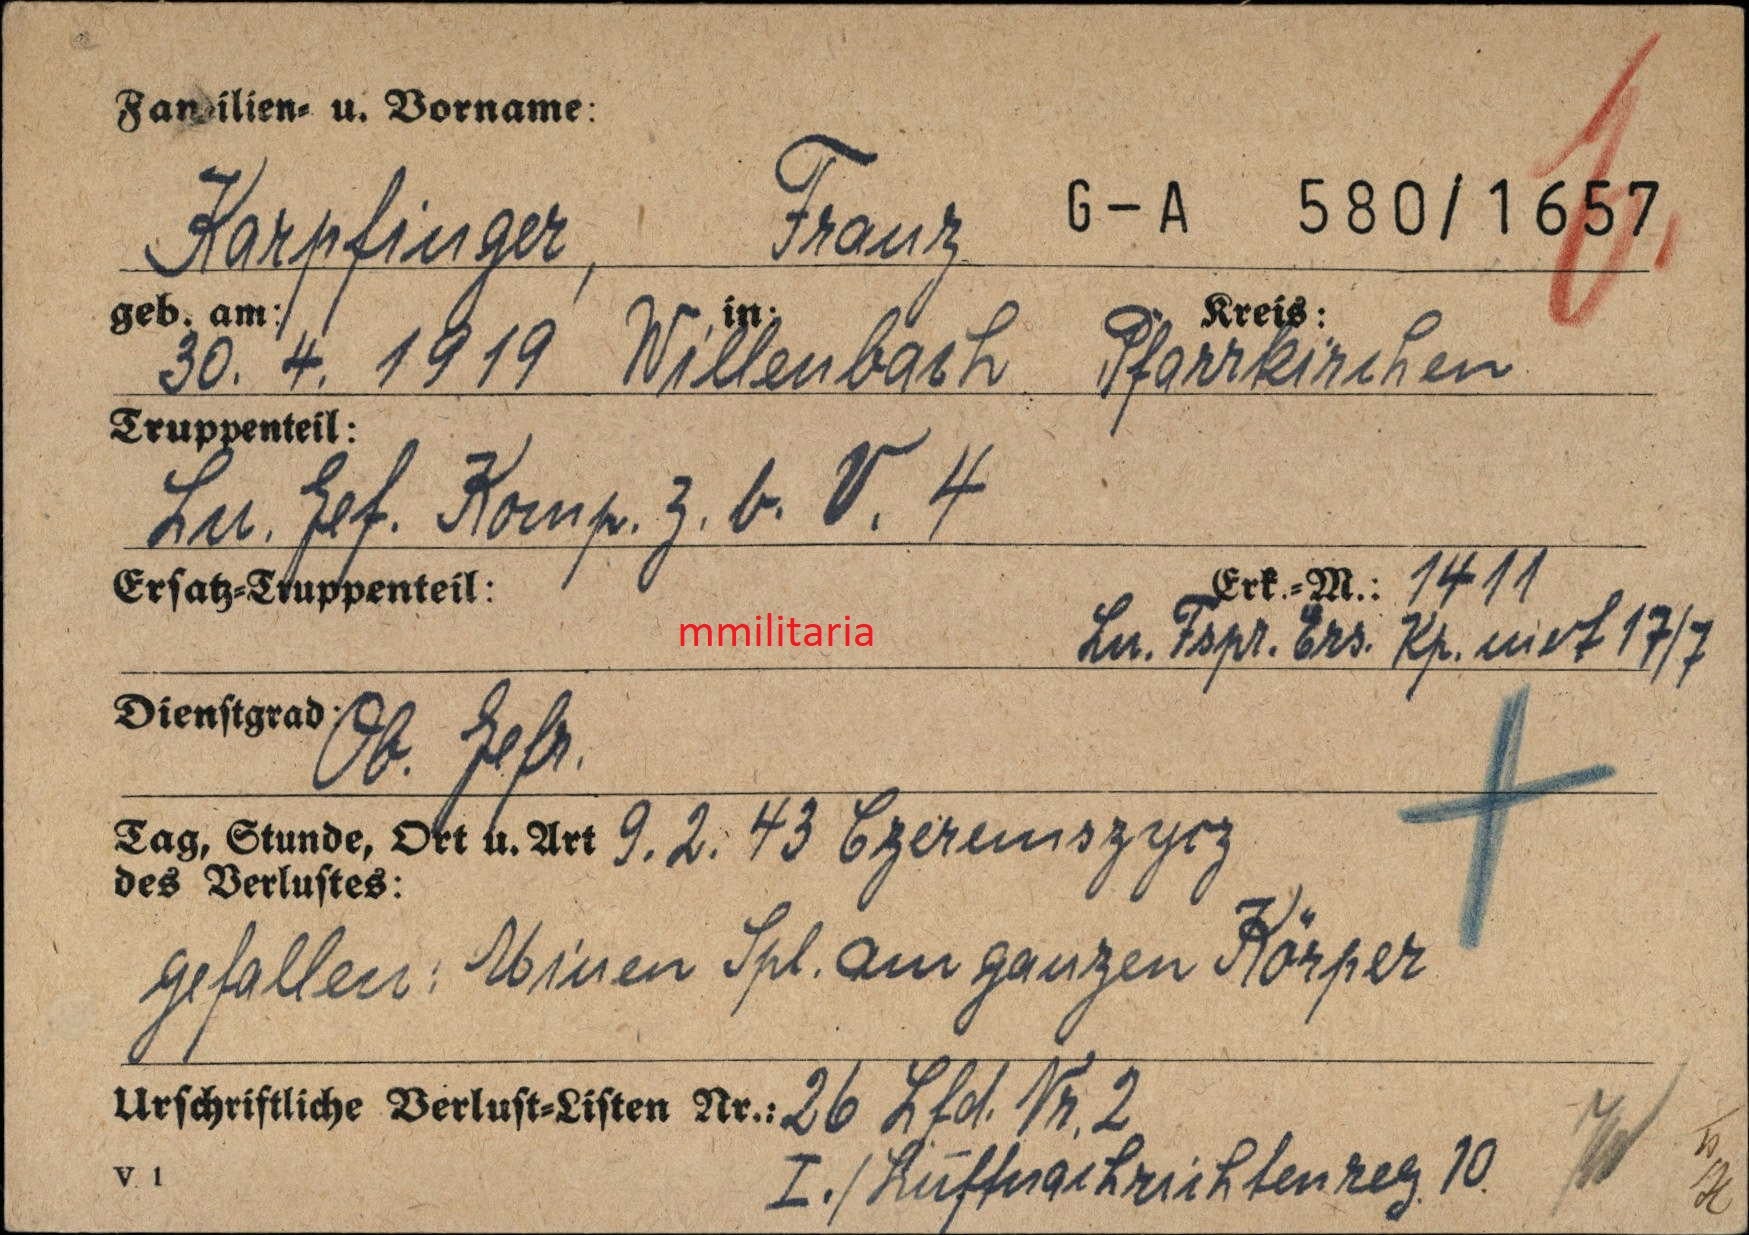 Familien- u. Vorname:
Karpfinger, Franz G-A 580/1657
geb. am: in: Kreis:
30. 4. 1919 Willenbach Pfarrkirchen
Truppenteil:
Ln. Gef. Komp. z. b. V. 4
Ersatz-Truppenteil: Erk.-M.: 1411
mmilitaria Ln. Fspr. Ers. Kp. mot 17/7
Dienstgrad: Ob. Gefr.
Tag, Stunde, Ort u. Art 9. 2. 43 Czeremszycz
des Verlustes:
gefallen: Minen Spl. am ganzen Körper
Urschriftliche Verlust-Listen Nr.: 26 Lfd. Nr. 2
V 1 I./Luftnachrichtenreg. 10.